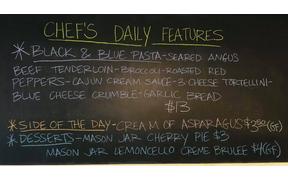 CHEF'S DAILY FEATURES
* BLACK & BLUE PASTA - SEARED ANGUS
BEEF TENDERLOIN - BROCCOLI - ROASTED RED
PEPPERS - CAJUN CREAM SAUCE - 3 CHEESE TORTELLINI -
BLUE CHEESE CRUMBLE - GARLIC BREAD
$13
* SIDE OF THE DAY - CREAM OF ASPARAGUS $3.50 (GF)
* DESSERTS - MASON JAR CHERRY PIE $3
MASON JAR LEMONCELLO CREME BRULEE $4 (GF)